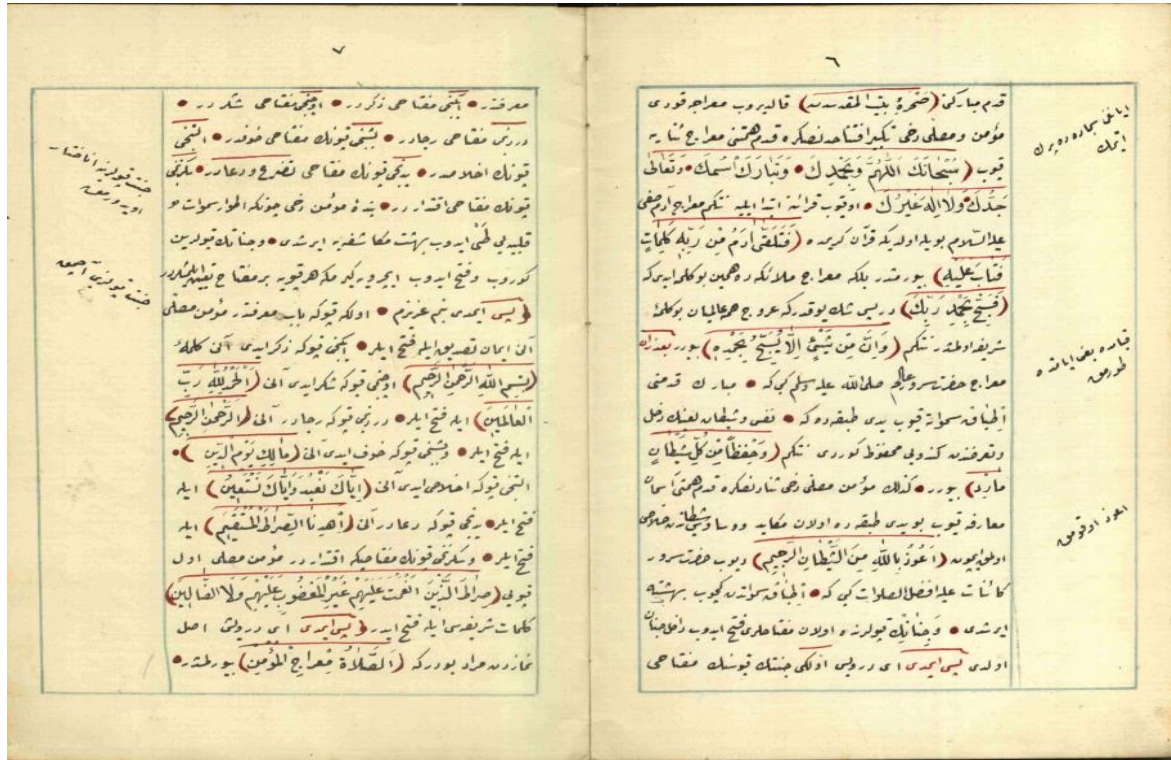 ٦
قدم مباركنی (صخرهٔ بیت المقدسدن) قالدیروب معراجه قودی
مؤمن ومصلی دخی تكبیر افتتاحدنصكره قدم همتنی معراج ثنایه
قیوب (سُبْحَانَكَ اَللّٰهُمَّ وَبِحَمْدِكَ • وَتَبَارَكَ اسْمُكَ • وَتَعَالٰی
جَدُّكَ وَلَا اِلٰهَ غَیْرُكَ • اوقیوب قرائته ابتدا ایلیه نتكم معراج آدم صفی
علیه السلام بویله اولدیكه قرآن كریمده (فَتَلَقّٰی اٰدَمُ مِنْ رَبِّهٖ كَلِمَاتٍ
فَتَابَ عَلَیْهِ) بیورمشدر بلكه معراج ملائكه ده همین بو كلمه ایدی كه
(فَسَبِّحْ بِحَمْدِ رَبِّكَ) دریس شك یوقدركه عروج همه عالمیان بوكلمهٔ
شریفه اولمشدر نتكم (وَاِنْ مِنْ شَیْئٍ اِلَّا یُسَبِّحُ بِحَمْدِهٖ) بیورر بعدزان
معراج حضرت سرور عالم صلی الله علیه وسلم كبی كه • مبارك قدمنی
اطباق سمواته قیوب یدی طبقه ده كه • نفس وشیطان لعینك دخل
وتعرضندن كندویی محفوظ كوردی نتكم (وَحِفْظًا مِنْ كُلِّ شَیْطَانٍ
مَارِدٍ) بیورر • كذلك مؤمن مصلی دخی ثنادنصكره قدم همتی اسمان
معارفه قیوب بویدی طبقه ده اولان مكاید ووساوس شیطاندن خلاص
اولمق ایچون (اَعُوذُ بِاللّٰهِ مِنَ الشَّیْطَانِ الرَّجِیمِ) دیوب حضرت سرور
كائنات علیه افضل الصلوات كبی كه • اطباق سمواتدن كچوب بهشته
ایرشدی • وجناتك قپولرنده اولان مفتاحلری فتح ایدوب داخل جنان
اولدی پس ایمدی ای درویش اولكی جنتك قپوسنك مفتاحی
ایاغنی سجاده ده برك
ایتمك
قیامده یعنی ایاقده
طورمق
اعوذ اوقومق
٧
معرفتدر • ایكنجی مفتاحی ذكردر • اوچنجی مفتاحی شكردر •
دردنجی مفتاحی رجادر • بشنجی قپونك مفتاحی خوفدر • التنجی
قپونك اخلاصدر • یدنجی قپونك مفتاحی تضرع ودعادر • سكزنجی
قپونك مفتاحی اقتدادر • بندهٔ مؤمن دخی چونكه اطوار سموات
قلبیه یی طی ایدوب بهشت مكاشفه یه ایرشدی • وجناتك قپولرین
كوروب وفتح ایدوب ایچرویه كیرمكه هر قپویه بر مفتاح تعیین ایلمشلردر
(پس ایمدی بنم عزیزم • اولكه قپوكه باب معرفتدر مؤمن مصلی
آنی ایمان تصدیق ایله فتح ایلر • ایكنجی قپوكه ذكر ایدی آنی كلمهٔ
(بِسْمِ اللّٰهِ الرَّحْمٰنِ الرَّحِیمِ) اوچنجی قپوكه شكر ایدی آنی (اَلْحَمْدُ لِلّٰهِ رَبِّ
الْعَالَمِینَ) ایله فتح ایلر • دردنجی قپوكه رجادر آنی (اَلرَّحْمٰنِ الرَّحِیمِ)
ایله فتح ایلر • وبشنجی قپوكه خوف ایدی آنی (مَالِكِ یَوْمِ الدِّینِ) •
التنجی قپوكه اخلاص ایدی آنی (اِیَّاكَ نَعْبُدُ وَاِیَّاكَ نَسْتَعِینُ) ایله
فتح ایلر • یدنجی قپوكه دعادر آنی (اِهْدِنَا الصِّرَاطَ الْمُسْتَقِیمَ) ایله
فتح ایلر • وسكزنجی قپونك مفتاحیكه اقتدادر مؤمن مصلی اول
قپویی (صِرَاطَ الَّذِینَ اَنْعَمْتَ عَلَیْهِمْ غَیْرِ الْمَغْضُوبِ عَلَیْهِمْ وَلَا الضَّالِّینَ)
كلمات شریفه سی ایله فتح ایدر (پس ایمدی ای درویش اصل
نمازدن مراد بودركه (اَلصَّلَاةُ مِعْرَاجُ الْمُؤْمِنِ) بیورلمشدر •
جنت قپولرینه اناختار
اویدورمق
جنت قپولرینی آچمق